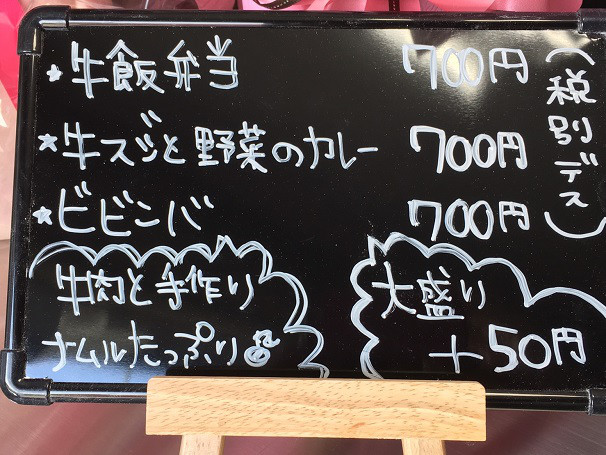 ★牛飯弁当 700円
★牛スジと野菜のカレー 700円
★ビビンバ 700円
(税別デス)
牛肉と手作り
ナムルたっぷり
大盛り
+50円